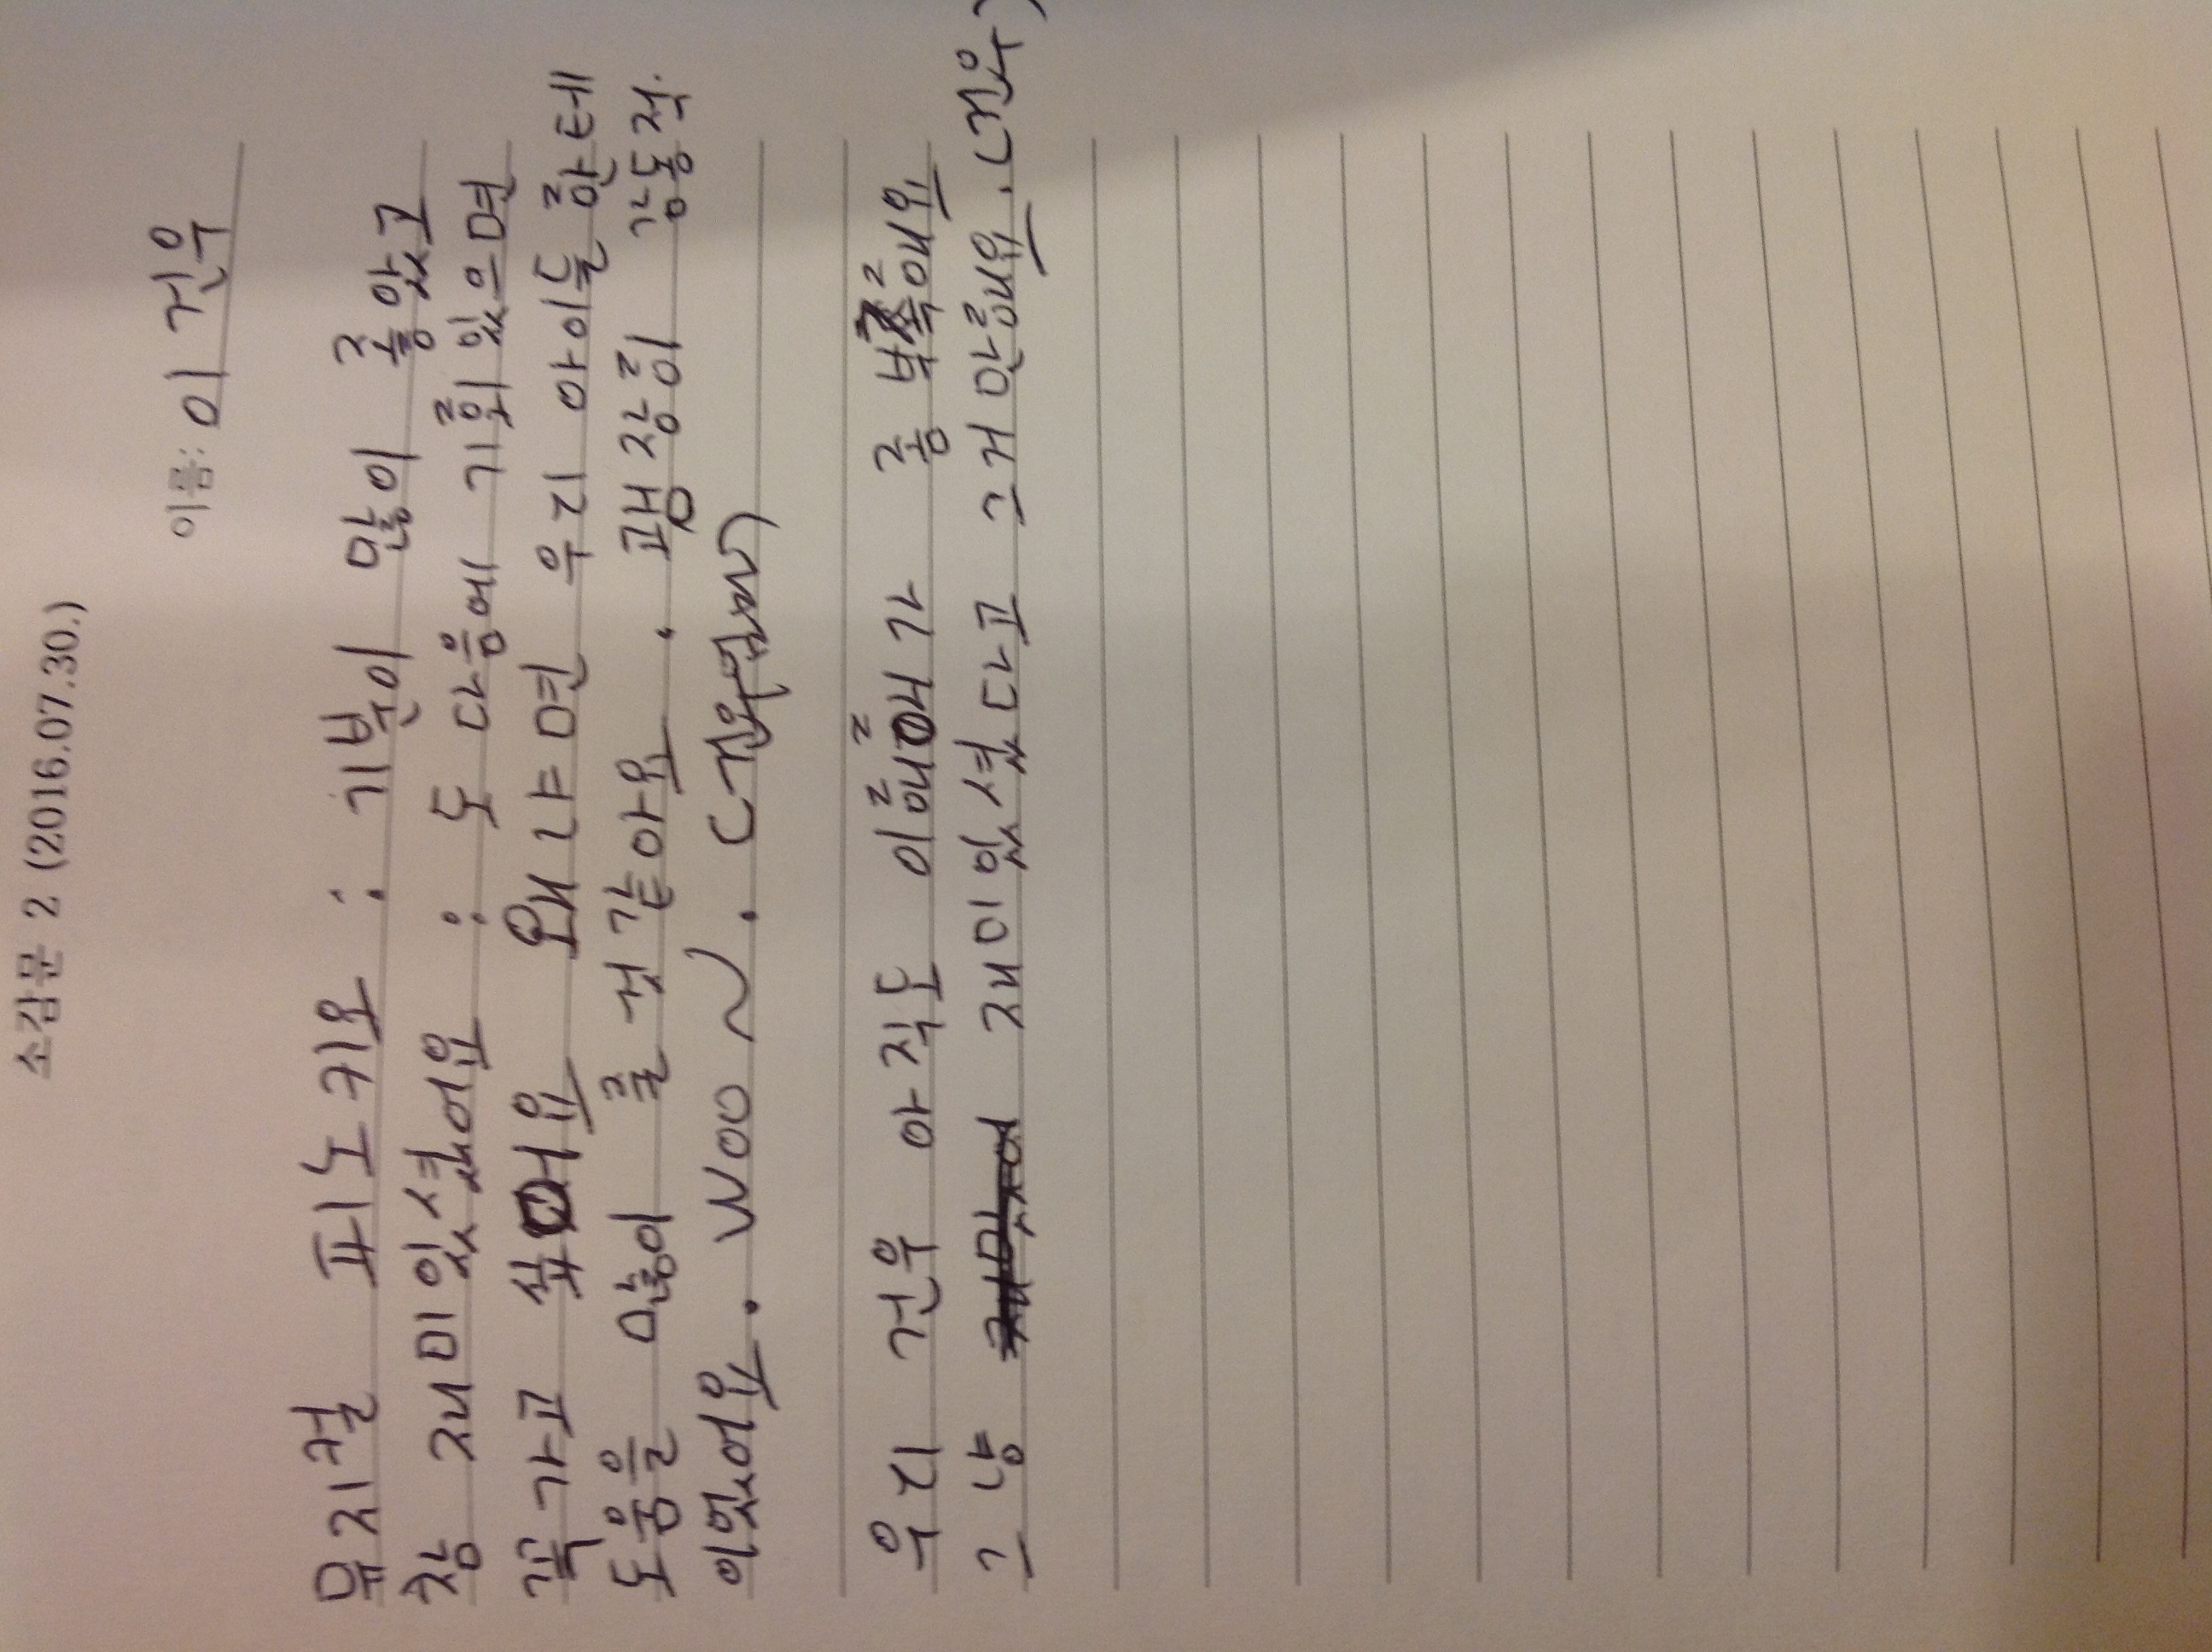 소감문 2 (2016.07.30.)
이름: 이건우
뮤지컬 피노키오 : 기분이 많이 좋았고
참 재미있셨어요 : 또 다음에 기회 있으면
꼭 가고 싶어요 왜냐면 우리 아이들 한테
도움을 많이 줄 것 같아요. 굉장히 감동적.
이였어요. woo ~. (건우
우리 건우 아직도 이해가 좀 부족해요
그냥 재미있셨다고 그거 만해요. (건우)